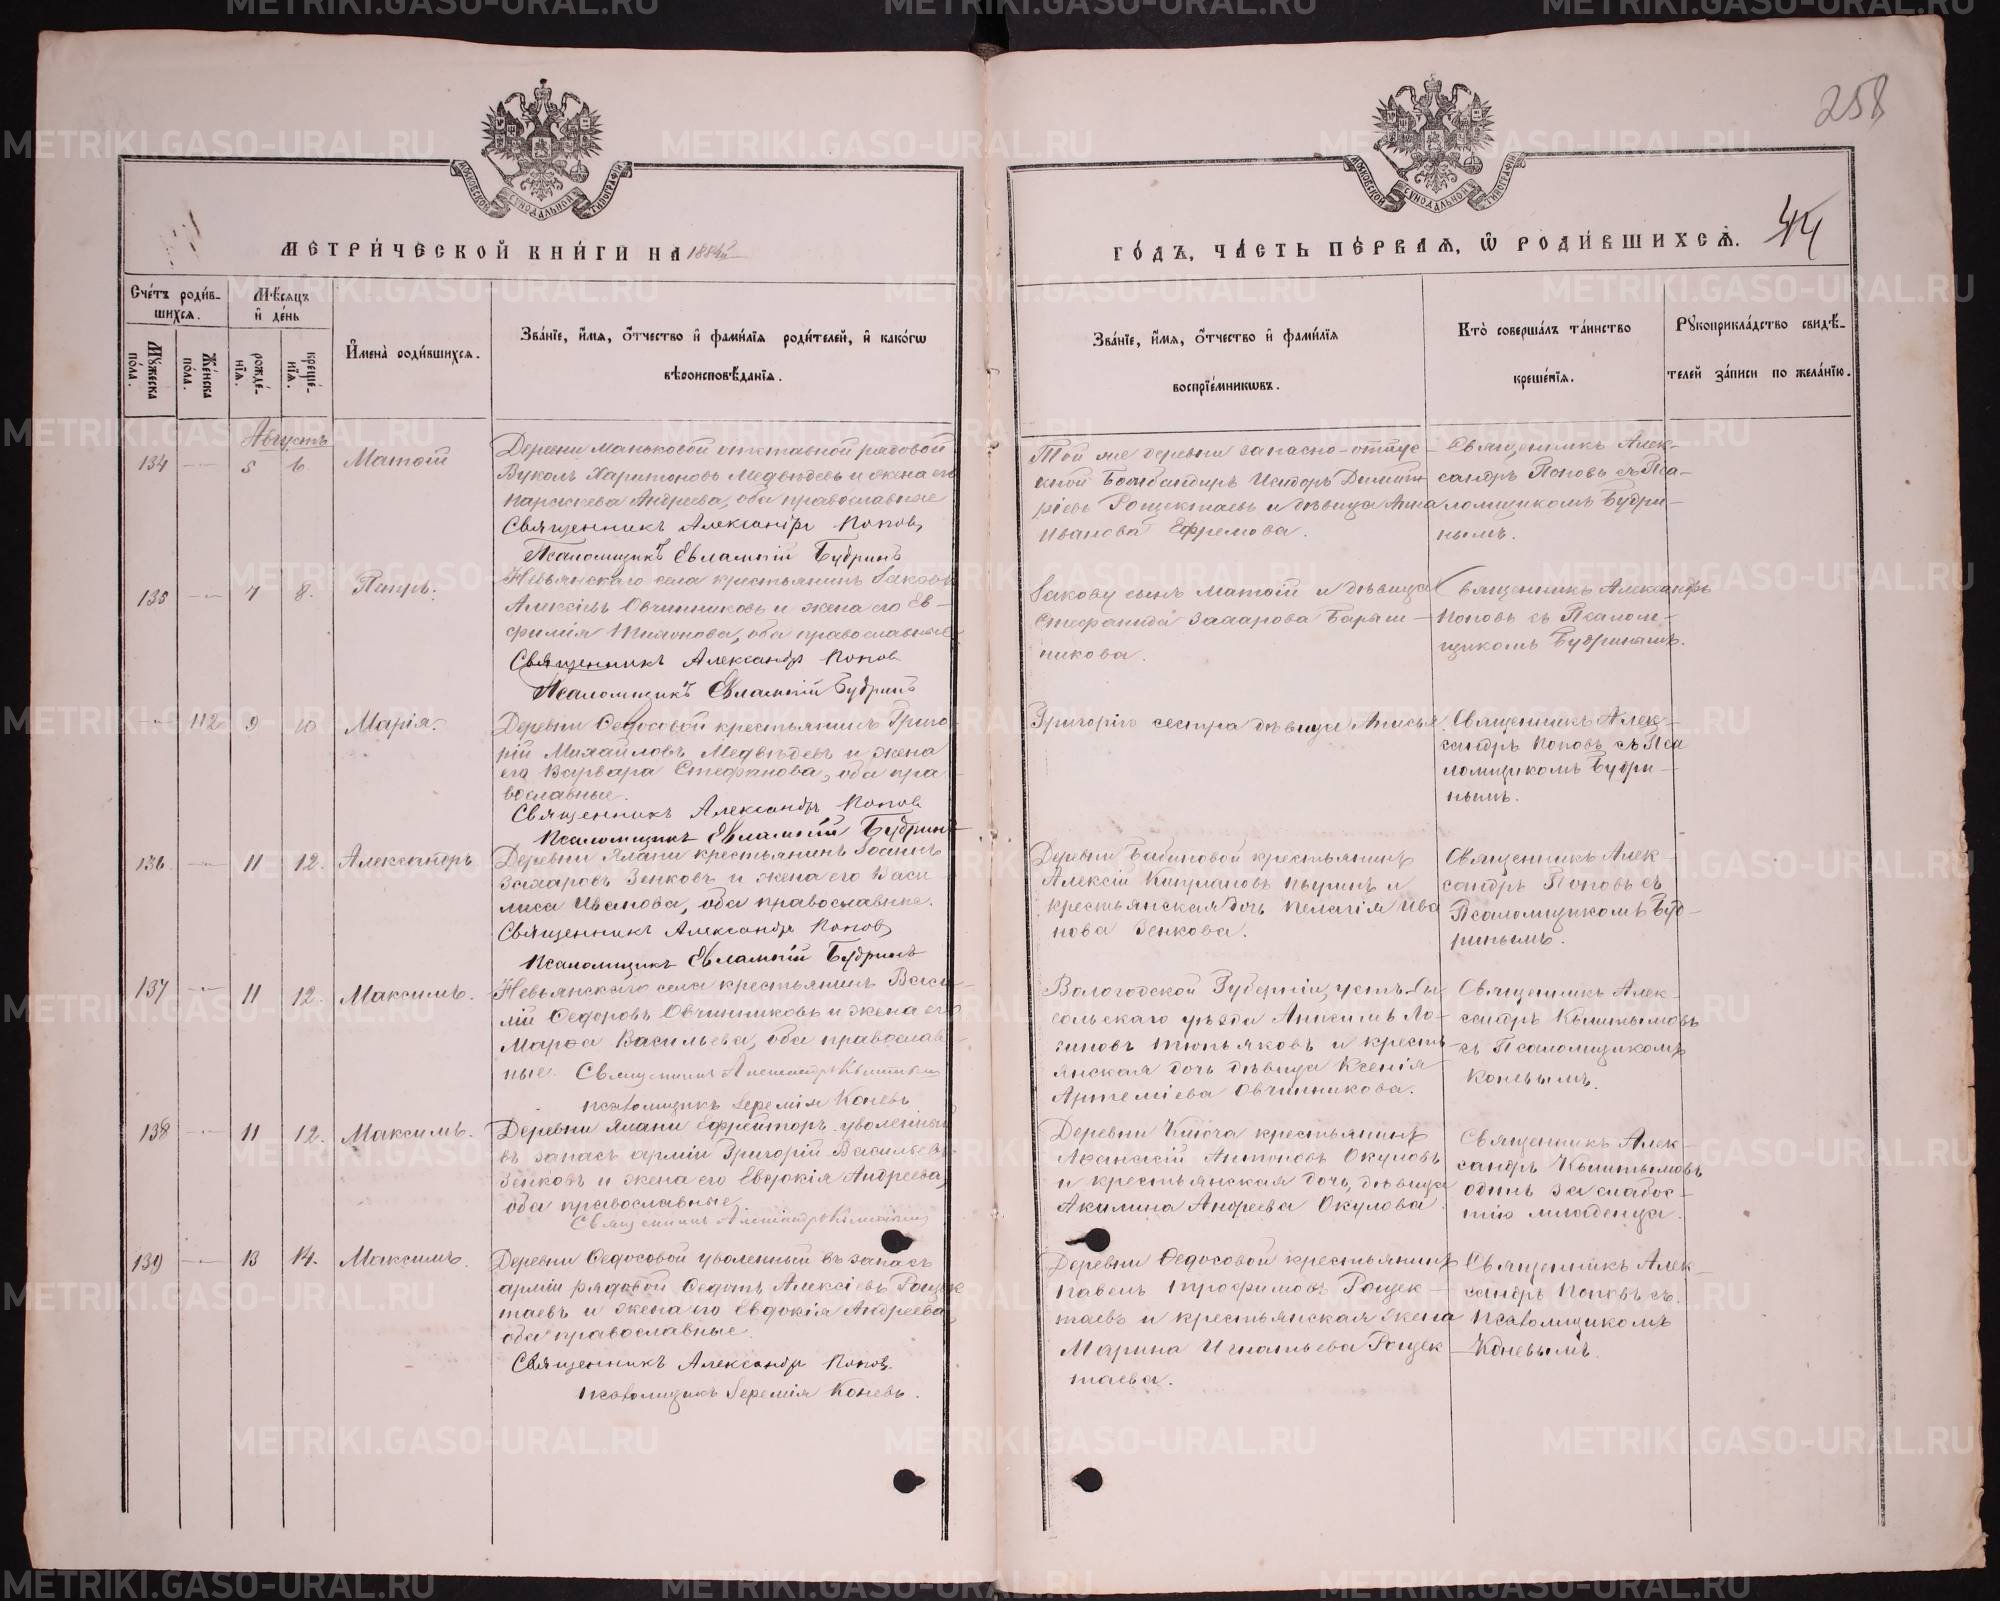 258
44
МОСКОВСКОЙ СѴНОДАЛЬНОЙ ТИПОГРАФІИ
МОСКОВСКОЙ СѴНОДАЛЬНОЙ ТИПОГРАФІИ
МЕТРИ́ЧЕСКОЙ КНИ́ГИ НА
ГО́ДЪ, ЧА́СТЬ ПЕ́РВАЯ, Ѡ РОДИ́ВШИХСѦ.
Сче́тъ роди́в-
шихсѧ.
Мꙋ́жеска по́ла.
Же́нска по́ла.
Мѣ́сѧцъ
и҆ де́нь
рожде́-
нїѧ.
креще́-
нїѧ.
И҆мена̀ роди́вшихсѧ.
Зва́нїе, и҆́мѧ, ѻ҆́тчество и҆ фамѝлїѧ роди́телей, и҆ како́гѡ
вѣроисповѣ́данїѧ.
Зва́нїе, и҆́мѧ, ѻ҆́тчество и҆ фамѝлїѧ
воспрїе́мникѡвъ.
Кто̀ соверша́лъ та́инство
креще́нїѧ.
Рꙋкоприкла́дство свидѣ́-
телей за́писи по жела́нїю.
Августъ
134 5 6 Матѳій
Деревни Маньковой отставной рядовой
Вуколъ Харитоновъ Медвѣдевъ и жена его
Параскева Андреева, оба православные
Священникъ Александръ Поповъ
Псаломщикъ Евлампій Будринъ
Той же деревни запасно-отпус-
кной Бомбандиръ Исидоръ Димит-
ріевъ Рощектаевъ и дѣвица Анна
Иванова Ефремова.
Священникъ Алек-
сандръ Поповъ съ Пса-
ломщикомъ Будри-
нымъ.
135 7 8. Петръ.
Невьянскаго села крестьянинъ Іаковъ
Алексіевъ Овчинниковъ и жена его Ев-
фимія Тихонова, оба православные
Священникъ Александръ Попов
Псаломщикъ Евлампій Будринъ
Іакову сынъ Матѳій и дѣвица
Стефанида Захарова Барыш-
никова.
Священникъ Александръ
Поповъ съ Псалом-
щикомъ Будринымъ.
112 9 10 Марія.
Деревни Ѳедосовой крестьянинъ Григо-
рій Михайловъ Медвѣдевъ и жена
его Варвара Стефанова, оба пра-
вославные.
Священникъ Александръ Попов
Псаломщикъ Евлампій Будринъ
Григорію сестра дѣвица Анисья
Священникъ Алек-
сандръ Поповъ съ Пса
ломщикомъ Будри-
нымъ.
136 11 12. Александръ
Деревни Ялани крестьянинъ Іоаннъ
Захаровъ Зенковъ и жена его Васи
лиса Иванова, оба православные.
Священникъ Александръ Попов
Псаломщикъ Евлампій Будринъ
Деревни Бабиновой крестьянинъ
Алексій Киприановъ Пьринъ и
крестьянская дочь Пелагія Ива
нова Зенкова.
Священникъ Алек-
сандръ Поповъ съ
Псаломщикомъ Буд-
ринымъ.
137 11 12. Максимъ.
Невьянскаго села крестьянинъ Васи-
лій Ѳедоровъ Овчинниковъ и жена его
Марѳа Васильева, оба православ-
ные. Священникъ Александръ
псаломщикъ Іеремія Коневъ
Вологодской Губерніи, усть-Сы-
сольскаго уѣзда Анисимъ Ло-
гиновъ Тюпьяковъ и кресть-
янская дочь дѣвица Ксенія
Артеміева Овчинникова.
Священникъ Алек-
сандръ Кыштымовъ
съ Псаломщикомъ
Коневымъ.
138 11 12. Максимъ.
Деревни Ялани Ефрейторъ, уволенный
въ запасъ арміи Григорій Васильевъ
Зенковъ и жена его Евдокія Андреева,
оба православные.
Священникъ Александръ
Деревни Ключа крестьянинъ
Аѳанасій Антоновъ Окуловъ
и крестьянская дочь, дѣвица
Акилина Андреева Окулова.
Священникъ Алек-
сандръ Кыштымовъ
одинъ за слабос-
тію младенца.
139 13 14. Максимъ.
Деревни Ѳедосовой уволенный въ запасъ
арміи рядовой Ѳедотъ Алексіевъ Рощек
таевъ и жена его Евдокія Андреева,
оба православные.
Священникъ Александръ Попов.
псаломщикъ Іеремія Коневъ.
Деревни Ѳедосовой крестьянинъ
Павелъ Трофимовъ Рощек-
таевъ и крестьянская жена
Марина Игнатьева Рощек
таева.
Священникъ Алек-
сандръ Поповъ съ
псаломщикомъ
Коневымъ.